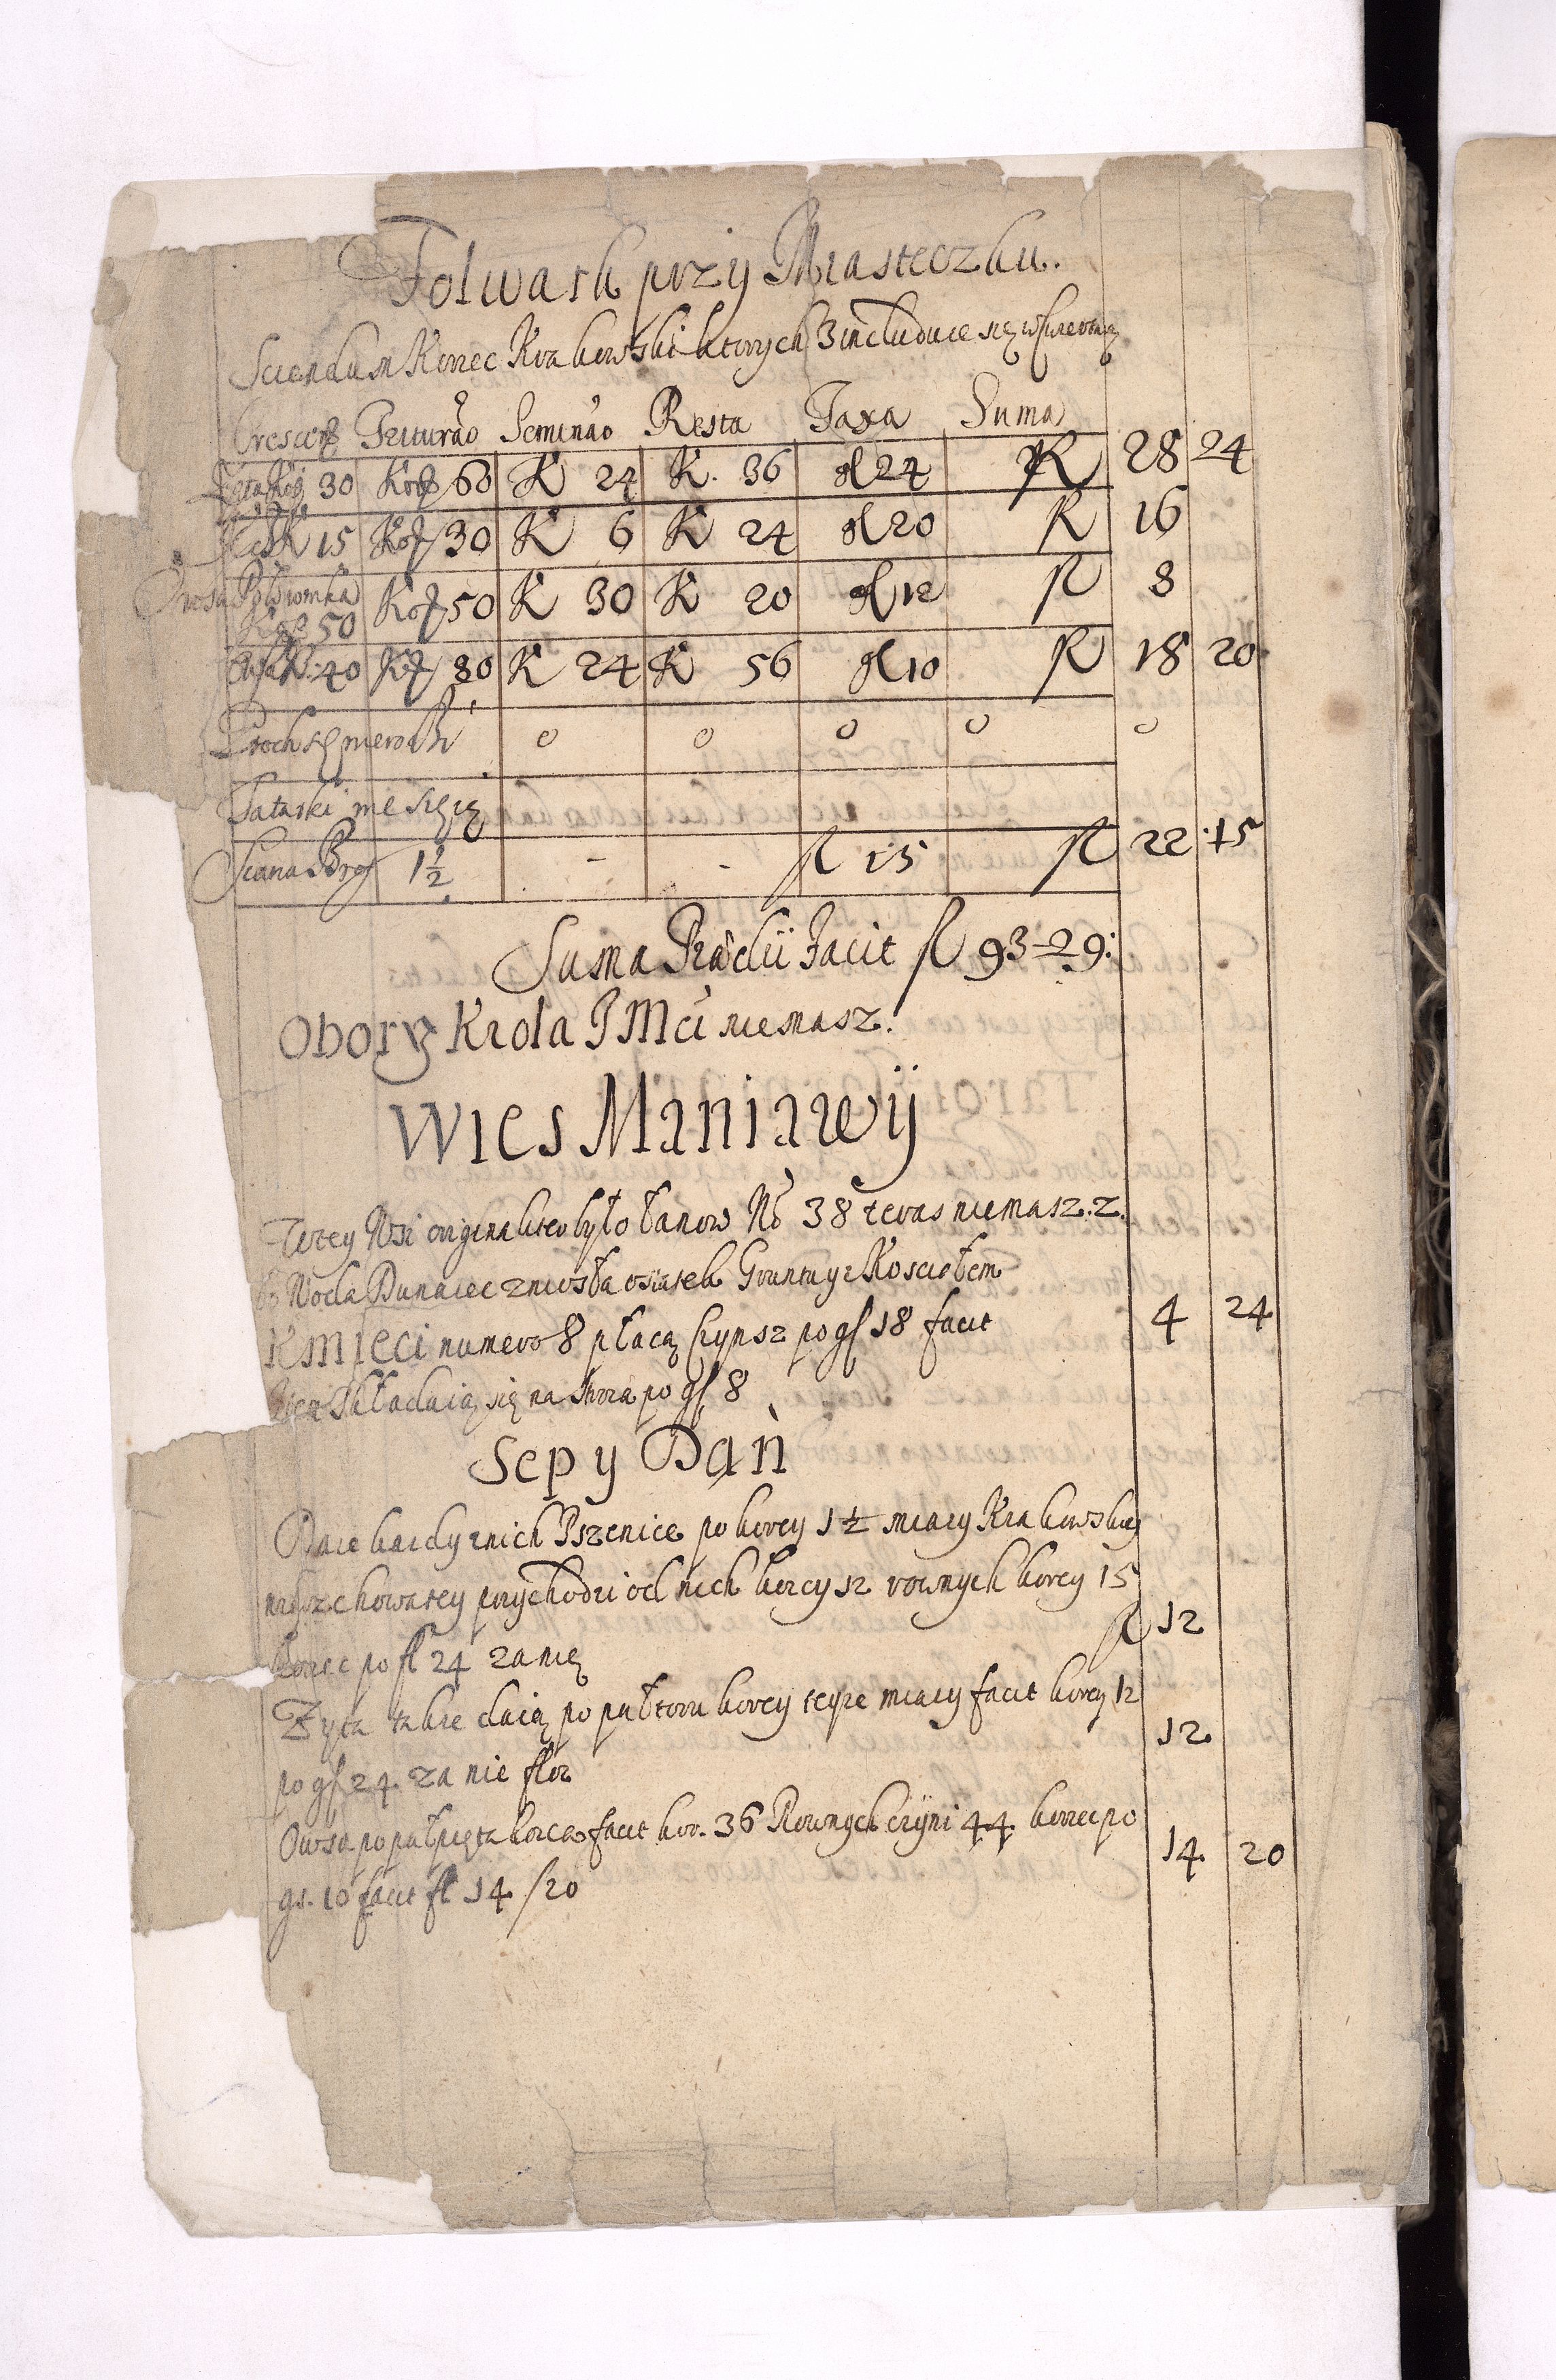 Folwark przy Miasteczku.
Sciendum Korzec Krakowski ktorych 3 includuie się w
Crescen Triturao Seminao Resta Taxa Suma
Zyta Kop 30 Korc 60 K 24 K. 36 gl 24 fl 28 24
K 15 Kor 30 K 6 K 24 gl 20 fl 16
Prosa Kop 50 Kor 50 K 30 K 20 gl 12 fl 8
Owsa K: 40 Kor 80 K 24 K 56 gl 10 fl 18 20
Groch się nie rodzi 0 0 0 0 0
Tatarki nie sieią
Siana Brog 1 1/2 - - fl 15 fl 22 15
Suma Prædii Facit fl 93-29:
Obory Krola JMci niemasz.
Wies Maniawÿ
Wtey Wsi originaliter było Łanow No 38 teras niemasz. 2.
bo Woda Dunaiec zniosła ostatek Gruntu y z Kosciołem
Kmieci numero 8 płacą Czynsz po gl 18 facit 4 24
Ciez składaią się na Stroza po gl 8
Sep y Dań
Daie kazdy znich Pszenice po korcy 1 1/2 miary Krakowskiey
przychodzi od nich korcy 12 rownych korcy 15
korzec po fl 24 za nię fl 12
Zyta takze daią po pułtoru korcy teyze miary facit korcy 12
po gl 24. za nie flor 12
Owsa po pułpięta korca facit kor. 36 Rownych czÿni 44 korzec po
gr. 10 facit fl 14 /20 14 20